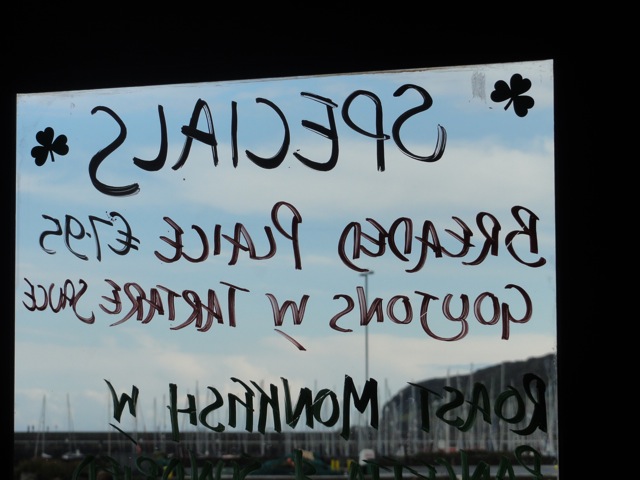 SPECIALS
BREADED PLAICE €7.95
GOUJONS W/ TARTARE SAUCE
ROAST MONKFISH W/